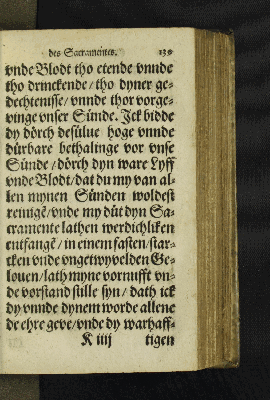 des Sacramentes. 130
vnde Blodt tho etende vnnde
tho drinckende/ tho dyner ge-
dechtenisse/ vnnde thor vorge-
vinge vnser Sünde. Jck bidde
dy dörch desülue hoge vnnde
dürbare bethalinge vor vnse
Sünde/ dörch dyn ware Lyff
vnde Blodt/ dat du my van al-
len mynen Sünden woldest
reinigē/ vnde my düt dyn Sa-
cramente lathen werdichliken
entfangē/ in einem fasten/ star-
cken vnde vngetwyvelden Ge-
louen/ lath myne vornufft vn-
de vorstand stille syn/ dath ick
dy vnde dynem worde allene
de ehre geve/ vnde dy warhaff-
K iiij tigen